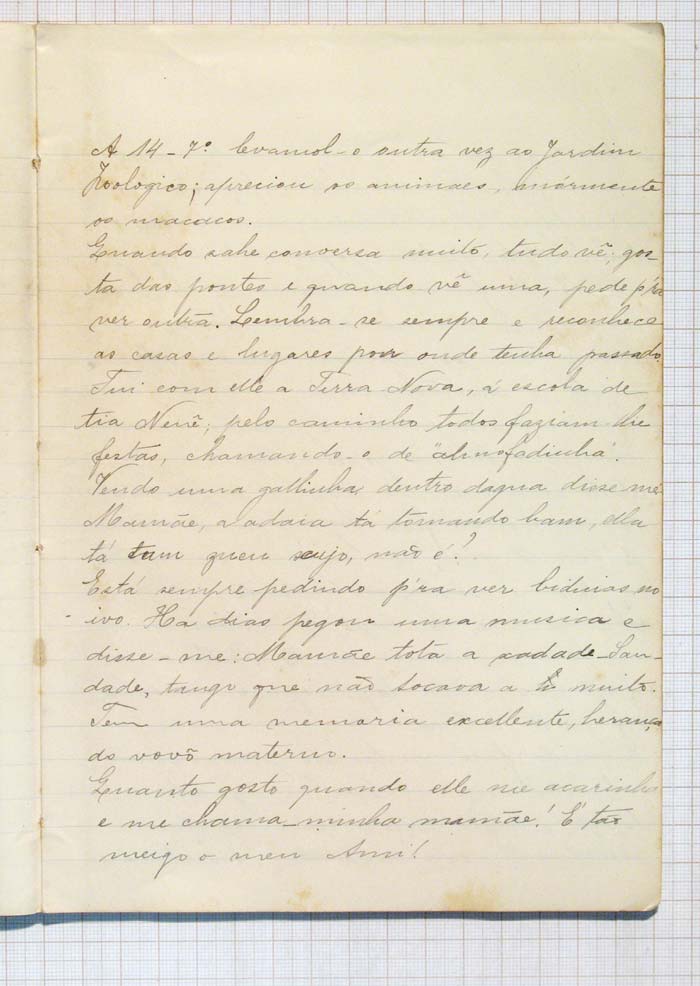 A 14-7º levamol-o outra vez ao Jardim
Zoologico; apreciou os animaes, mórmente
os macacos.
Quando sahe conversa muito, tudo vê; gos-
ta das pontes e quando vê uma, pede p'ra
ver outra. Lembra-se sempre e reconhece
as casas e lugares por onde tenha passado.
Fui com elle a Terra Nova, á escola de
tia Nenê; pelo caminho todos faziam lhe
festas, chamando-o de "almofadinha".
Vendo uma gallinha dentro dagua disse me:
Mamãe, a adaia tá tomando bam, ella
tá tum queu sujo, não é?
Está sempre pedindo p'ra ver biduias no
ivo. Ha dias pegou uma musica e
disse-me: Mamãe tota a xadade-Sau-
dade, tango que não tocava a muito.
Tem uma memoria excellente, herança
do vovô materno.
Quanto gosto quando elle me acarinha
e me chama-minha mamãe! É tão
meigo o meu Ami!